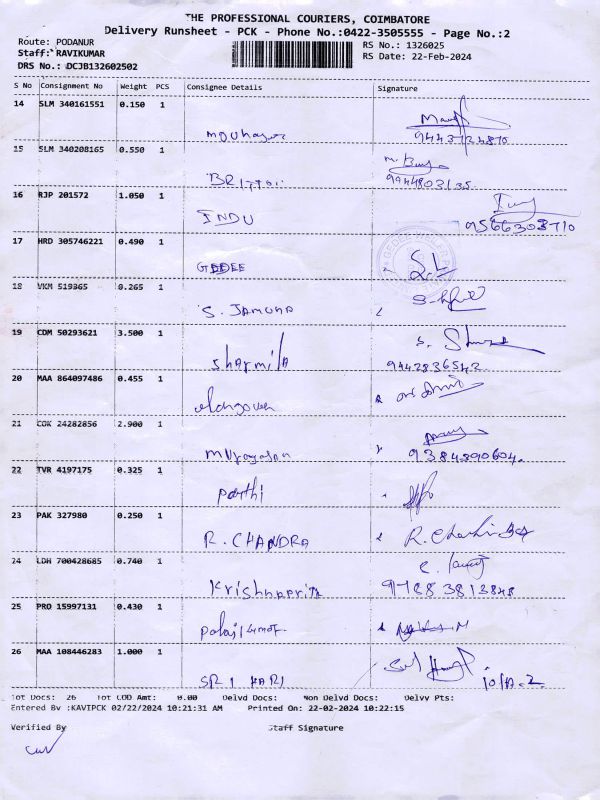 THE PROFESSIONAL COURIERS, COIMBATORE
Delivery Runsheet - PCK - Phone No.:0422-3505555 - Page No.:2
Route: PODANUR
RS No.: 1326025
Staff: RAVIKUMAR
RS Date: 22-Feb-2024
DRS No.: DCJB132602502
S No Consignment No Weight PCS Consignee Details Signature
14 SLM 340161551 0.150 1
15 SLM 340208165 0.550 1
16 RJP 201572 1.050 1
INDU
9566303710
17 HRD 305746221 0.490 1
GEDEE
18 VKM 519365 0.265 1
S. JAMUNA
19 CDM 50293621 3.500 1
Sharmila
9442836542
20 MAA 864097486 0.455 1
elangovan
21 COK 24282856 2.900 1
9384890604.
22 TVR 4197175 0.325 1
parthi
23 PAK 327980 0.250 1
R. CHANDRA
24 LDH 700428685 0.740 1
Krishnapriya
25 PRO 15997131 0.430 1
26 MAA 108446283 1.000 1
SRI HARI
Tot Docs: 26 Tot COD Amt: 0.00 Delvd Docs: Non Delvd Docs: Delvy Pts:
Entered By :KAVIPCK 02/22/2024 10:21:31 AM Printed On: 22-02-2024 10:22:15
Verified By Staff Signature